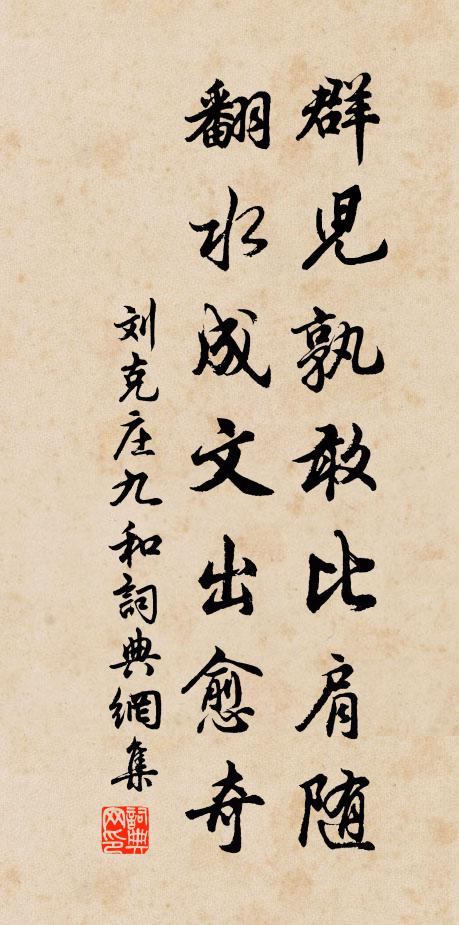 群児孰敢比肩随
翻水成文出愈奇
刘克庄九和詞典網集
詞典网印